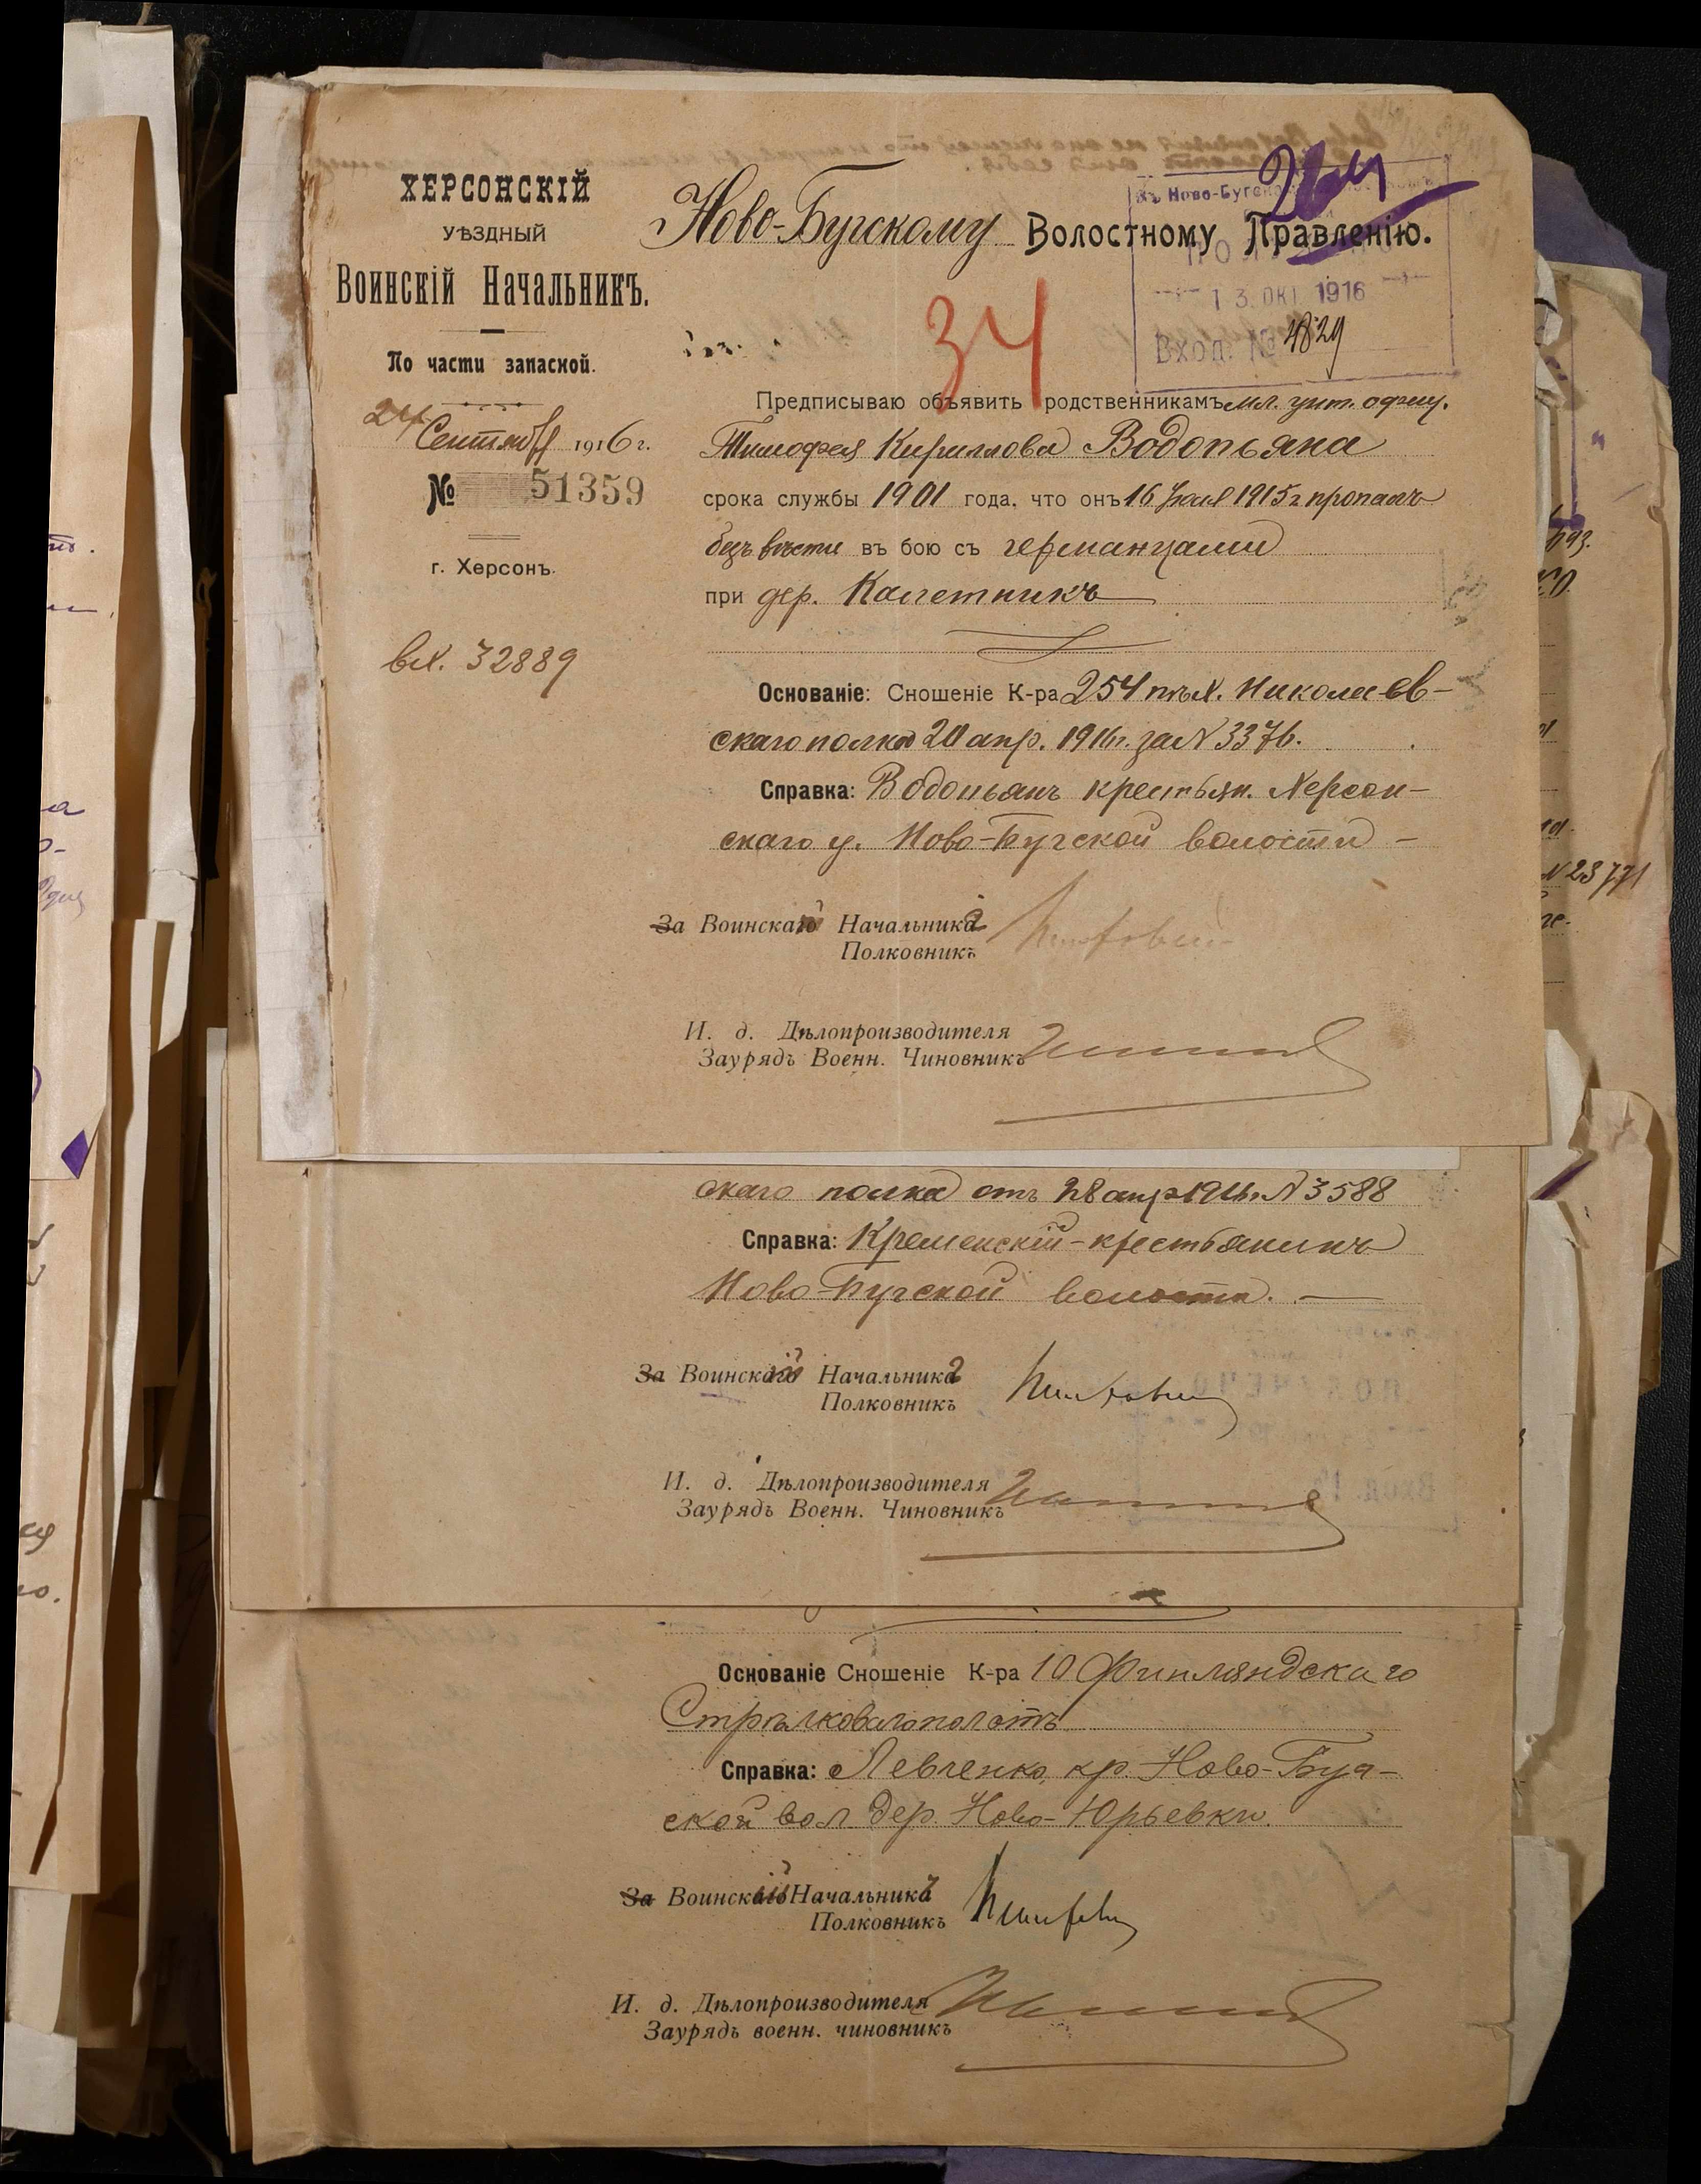 ХЕРСОНСКІЙ
УѢЗДНЫЙ
ВОИНСКІЙ НАЧАЛЬНИКЪ.
По части запасной.
24 Сентября 1916 г.
№ 51359
г. Херсонъ.
вх. 32889
Ново-Бугскому Волостному Правленію.
Въ Ново-Бугско
13. ОКТ. 1916
Вход. № 4829
34
Предписываю объявить родственникамъ мл. унт. офиц.
Тимофея Кириллова Водопьяна
срока службы 1901 года, что онъ 16 Іюля 1915 г пропалъ
безъ вѣсти въ бою съ германцами
при дер. Калетникъ
Основаніе: Сношеніе К-ра 254 пѣх. Николаев-
скаго полка 20 апр. 1916 г. за N 3376.
Справка: Водопьянъ крестьян. Херсон-
скаго у. Ново-Бугской волости —
За Воинскаго Начальника
Полковникъ
И. д. Дѣлопроизводителя
Заурядъ Военн. Чиновникъ
скаго полка отъ 28 апр 1916 г. N 3588
Справка: Кременскій - крестьянинъ
Ново-Бугской волости. —
За Воинскаго Начальника
Полковникъ
И. д. Дѣлопроизводителя
Заурядъ Военн. Чиновникъ
Основаніе Сношеніе К-ра 10 Финляндскаго
Стрѣлковаго
Справка: Левченко, кр. Ново-Буг-
ской вол. дер. Ново-Юрьевки.
За Воинскаго Начальника
Полковникъ
И. д. Дѣлопроизводителя
Заурядъ военн. чиновникъ
N 23771